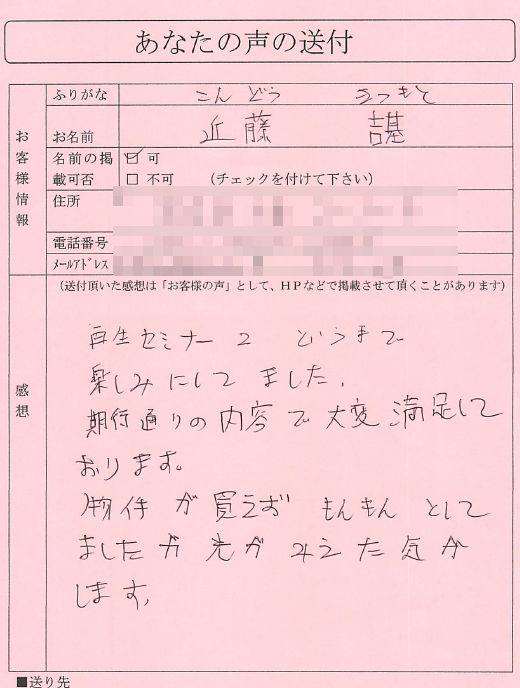 あなたの声の送付
ふりがな こんどう きつもと
お客様情報
お名前 近藤 吉基
名前の掲載可否 ☑ 可
□ 不可 (チェックを付けて下さい)
住所
電話番号
メールアドレス
(送付頂いた感想は「お客様の声」として、HPなどで掲載させて頂くことがあります)
感想
再生セミナー2
楽しみにしてました。
期行通りの内容で大変満足して
おります。
物件が買えず もんもんとして
ましたが光がみえた気が
します。
■送り先